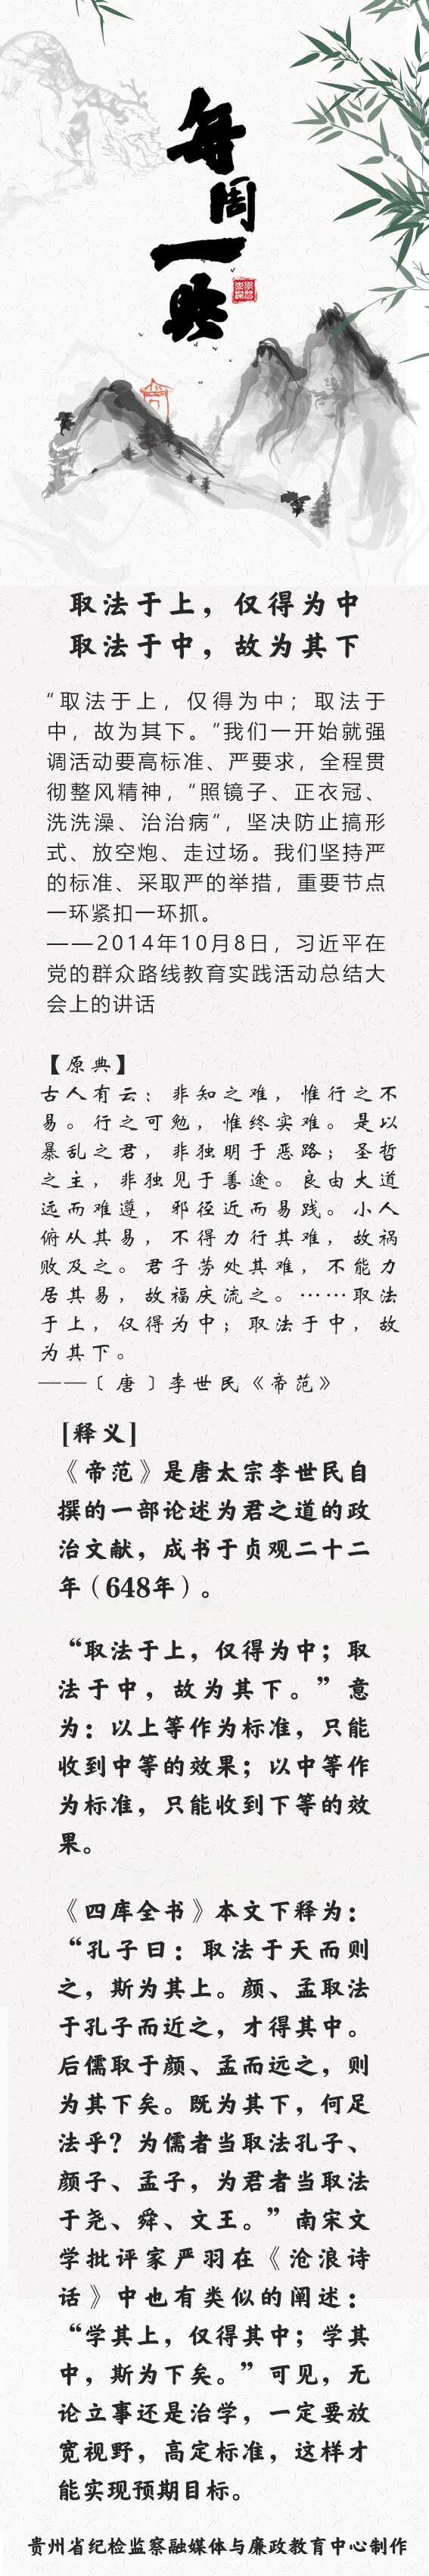 每周一典
取法于上，仅得为中
取法于中，故为其下
“取法于上，仅得为中；取法于
中，故为其下。”我们一开始就强
调活动要高标准、严要求，全程贯
彻整风精神，“照镜子、正衣冠、
洗洗澡、治治病”，坚决防止搞形
式、放空炮、走过场。我们坚持严
的标准、采取严的举措，重要节点
一环紧扣一环抓。
——2014年10月8日，习近平在
党的群众路线教育实践活动总结大
会上的讲话
【原典】
古人有云：非知之难，惟行之不
易。行之可勉，惟终实难。是以
暴乱之君，非独明于恶路；圣哲
之主，非独见于善途。良由大道
远而难遵，邪径近而易践。小人
俯从其易，不得力行其难，故祸
败及之。君子劳处其难，不能力
居其易，故福庆流之。……取法
于上，仅得为中；取法于中，故
为其下。
——〔唐〕李世民《帝范》
[释义]
《帝范》是唐太宗李世民自
撰的一部论述为君之道的政
治文献，成书于贞观二十二
年（648年）。
“取法于上，仅得为中；取
法于中，故为其下。”意
为：以上等作为标准，只能
收到中等的效果；以中等作
为标准，只能收到下等的效
果。
《四库全书》本文下释为：
“孔子曰：取法于天而则
之，斯为其上。颜、孟取法
于孔子而近之，才得其中。
后儒取于颜、孟而远之，则
为其下矣。既为其下，何足
法乎？为儒者当取法孔子、
颜子、孟子，为君者当取法
于尧、舜、文王。”南宋文
学批评家严羽在《沧浪诗
话》中也有类似的阐述：
“学其上，仅得其中；学其
中，斯为下矣。”可见，无
论立事还是治学，一定要放
宽视野，高定标准，这样才
能实现预期目标。
贵州省纪检监察融媒体与廉政教育中心制作